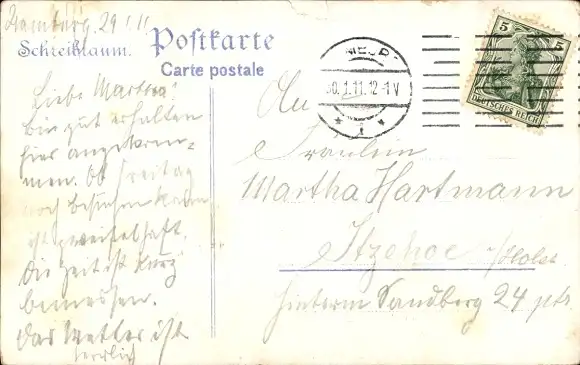 Hamburg, 29.1.11
Schreibraum.
Postkarte
Carte postale
Liebe Martha!
Bin gut erhalten
hier angekom-
men. Ob Freitag
noch besuchen kann
ist zweifelhaft.
Die Zeit ist kurz
bemessen.
Das Wetter ist
herrlich
30.1.11. 12-1V
5 5
DEUTSCHES REICH
An
Fräulein
Martha Hartmann
Itzehoe i/Holst
hinterm Sandberg 24 ptr.